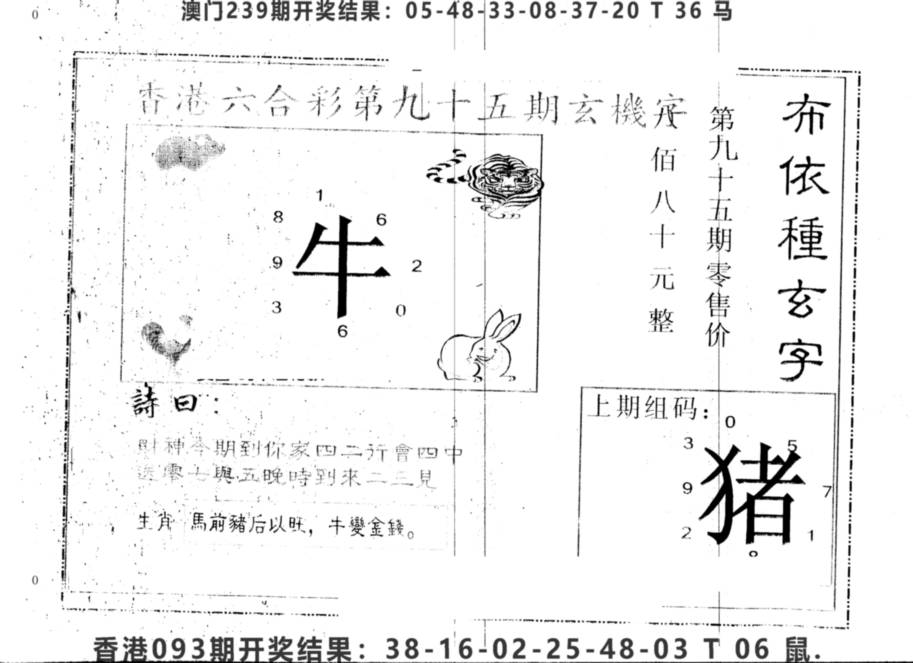 澳门239期开奖结果：05-48-33-08-37-20 T 36 马
香港六合彩第九十五期玄機字
布依種玄字
第九十五期零售价
佰八十元整
1
8 6
牛
9 2
3 0
6
詩曰：
財神今期到你家四二行會四中
送零七與五晚時到來二三見
生肖 馬前豬后以旺，牛變金錢。
上期组码：
0
3 5
猪
9 7
2 1
8
0
0
香港093期开奖结果：38-16-02-25-48-03 T 06 鼠.